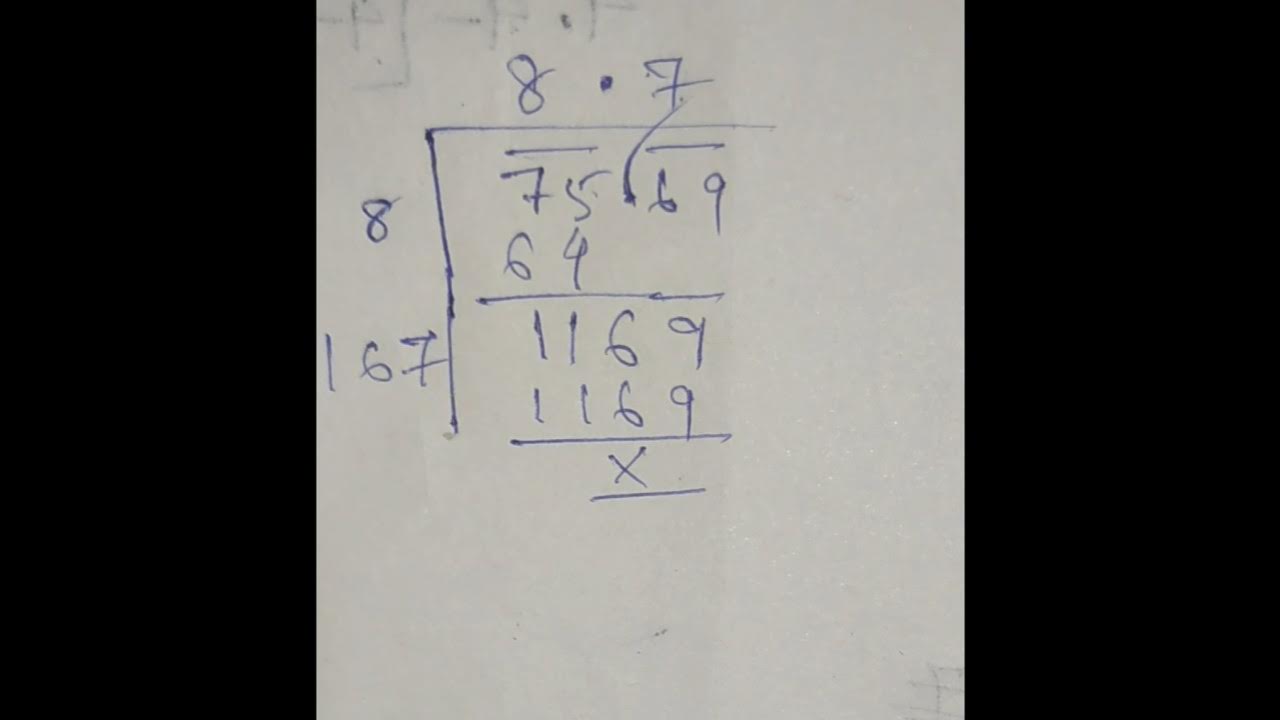 8.7
75.69
8
64
1169
167
1169
x